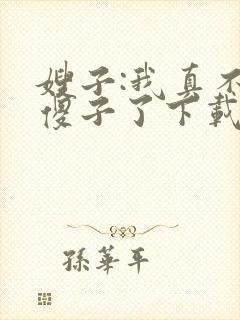 嫂子:我真不
傻子了下載
孫華平